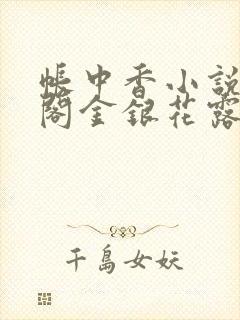 帐中香小説
閣金銀花露
千島女妖